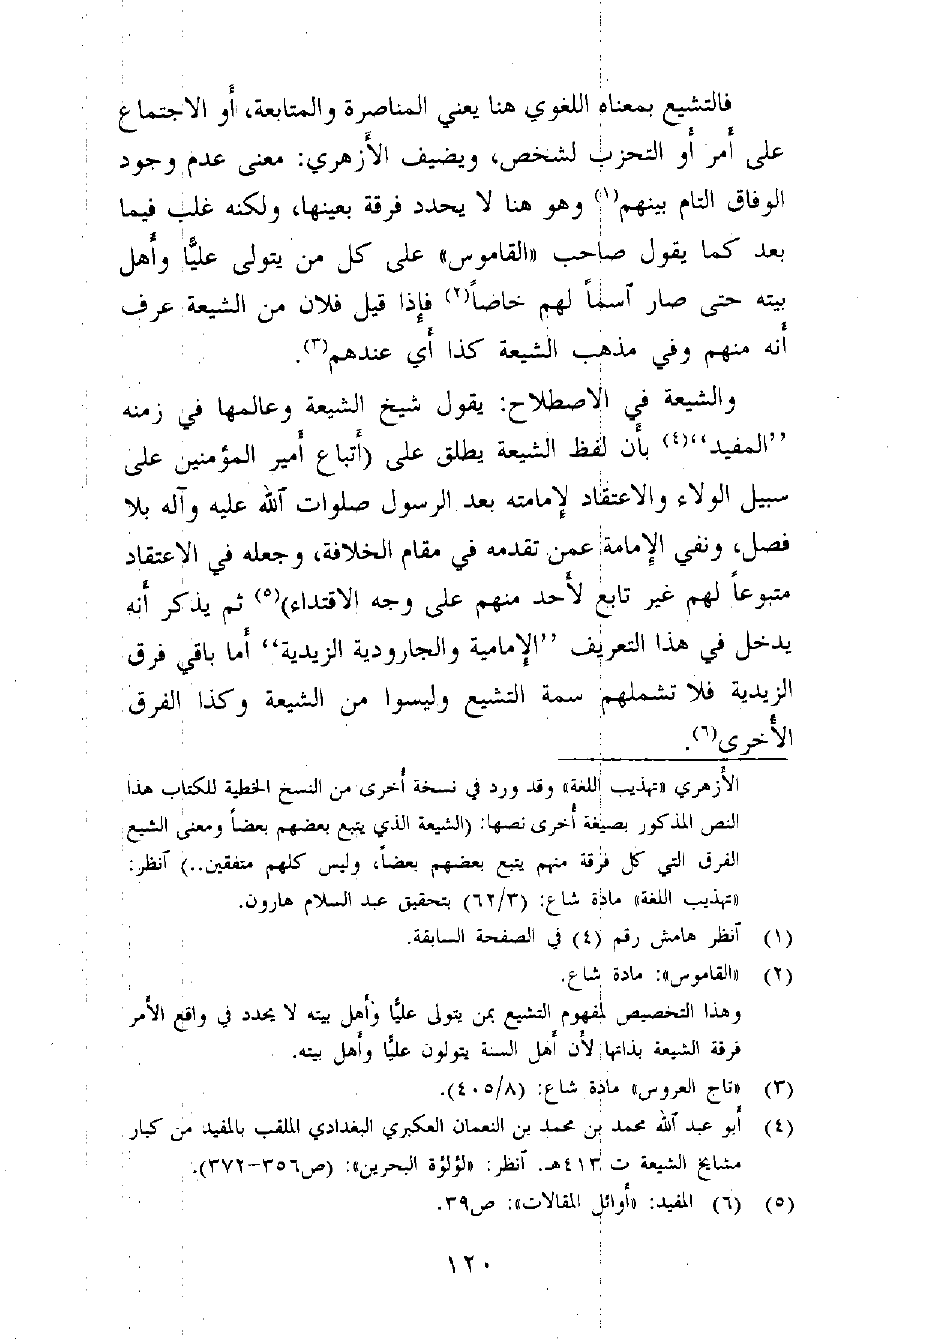 فالتشيع بمعناه اللغوي هنا يعني المناصرة والمتابعة، أو الاجتماع
على أمر أو التحزب لشخص، ويضيف الأزهري: معنى عدم وجود
الوفاق التام بينهم(١) وهو هنا لا يحدد فرقة بعينها، ولكنه غلب فيما
بعد كما يقول صاحب «القاموس» على كل من يتولى عليًّا وأهل
بيته حتى صار آسماً لهم خاصاً(٢) فإذا قيل فلان من الشيعة عرف
أنه منهم وفي مذهب الشيعة كذا أي عندهم(٣).
والشيعة في الاصطلاح: يقول شيخ الشيعة وعالمها في زمنه
”المفيد“(٤) بأن لفظ الشيعة يطلق على (أتباع أمير المؤمنين على
سبيل الولاء والاعتقاد لإمامته بعد الرسول صلوات آلله عليه وآله بلا
فصل، ونفي الإمامة عمن تقدمه في مقام الخلافة، وجعله في الاعتقاد
متبوعاً لهم غير تابع لأحد منهم على وجه الاقتداء)(٥) ثم يذكر أنه
يدخل في هذا التعريف ”الإمامية والجارودية الزيدية“ أما باقي فرق
الزيدية فلا تشملهم سمة التشيع وليسوا من الشيعة وكذا الفرق
الأخرى(٦).
الأزهري «تهذيب اللغة» وقد ورد في نسخة أخرى من النسخ الخطية للكتاب هذا
النص المذكور بصيغة أخرى نصها: (الشيعة الذي يتبع بعضهم بعضاً ومعنى الشيع
الفرق التي كل فرقة منهم يتبع بعضهم بعضاً، وليس كلهم متفقين..) آنظر:
«تهذيب اللغة» مادة شاع: (٦٢/٣) بتحقيق عبد السلام هارون.
(١) آنظر هامش رقم (٤) في الصفحة السابقة.
(٢) «القاموس»: مادة شاع.
وهذا التخصيص لمفهوم التشيع بمن يتولى عليًّا وأهل بيته لا يحدد في واقع الأمر
فرقة الشيعة بذاتها لأن أهل السنة يتولون عليًّا وأهل بيته.
(٣) «تاج العروس» مادة شاع: (٤٠٥/٨).
(٤) أبو عبد آلله محمد بن محمد بن النعمان العكبري البغدادي الملقب بالمفيد من كبار
مشايخ الشيعة ت ٤١٣هـ. آنظر: «لؤلؤة البحرين»: (ص٣٥٦-٣٧٢).
(٥) (٦) المفيد: «أوائل المقالات»: ص٣٩.
١٢٠